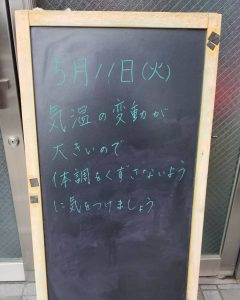 5月11日(火)
気温の変動が
大きいので
体調をくずさないよう
に気をつけましょう